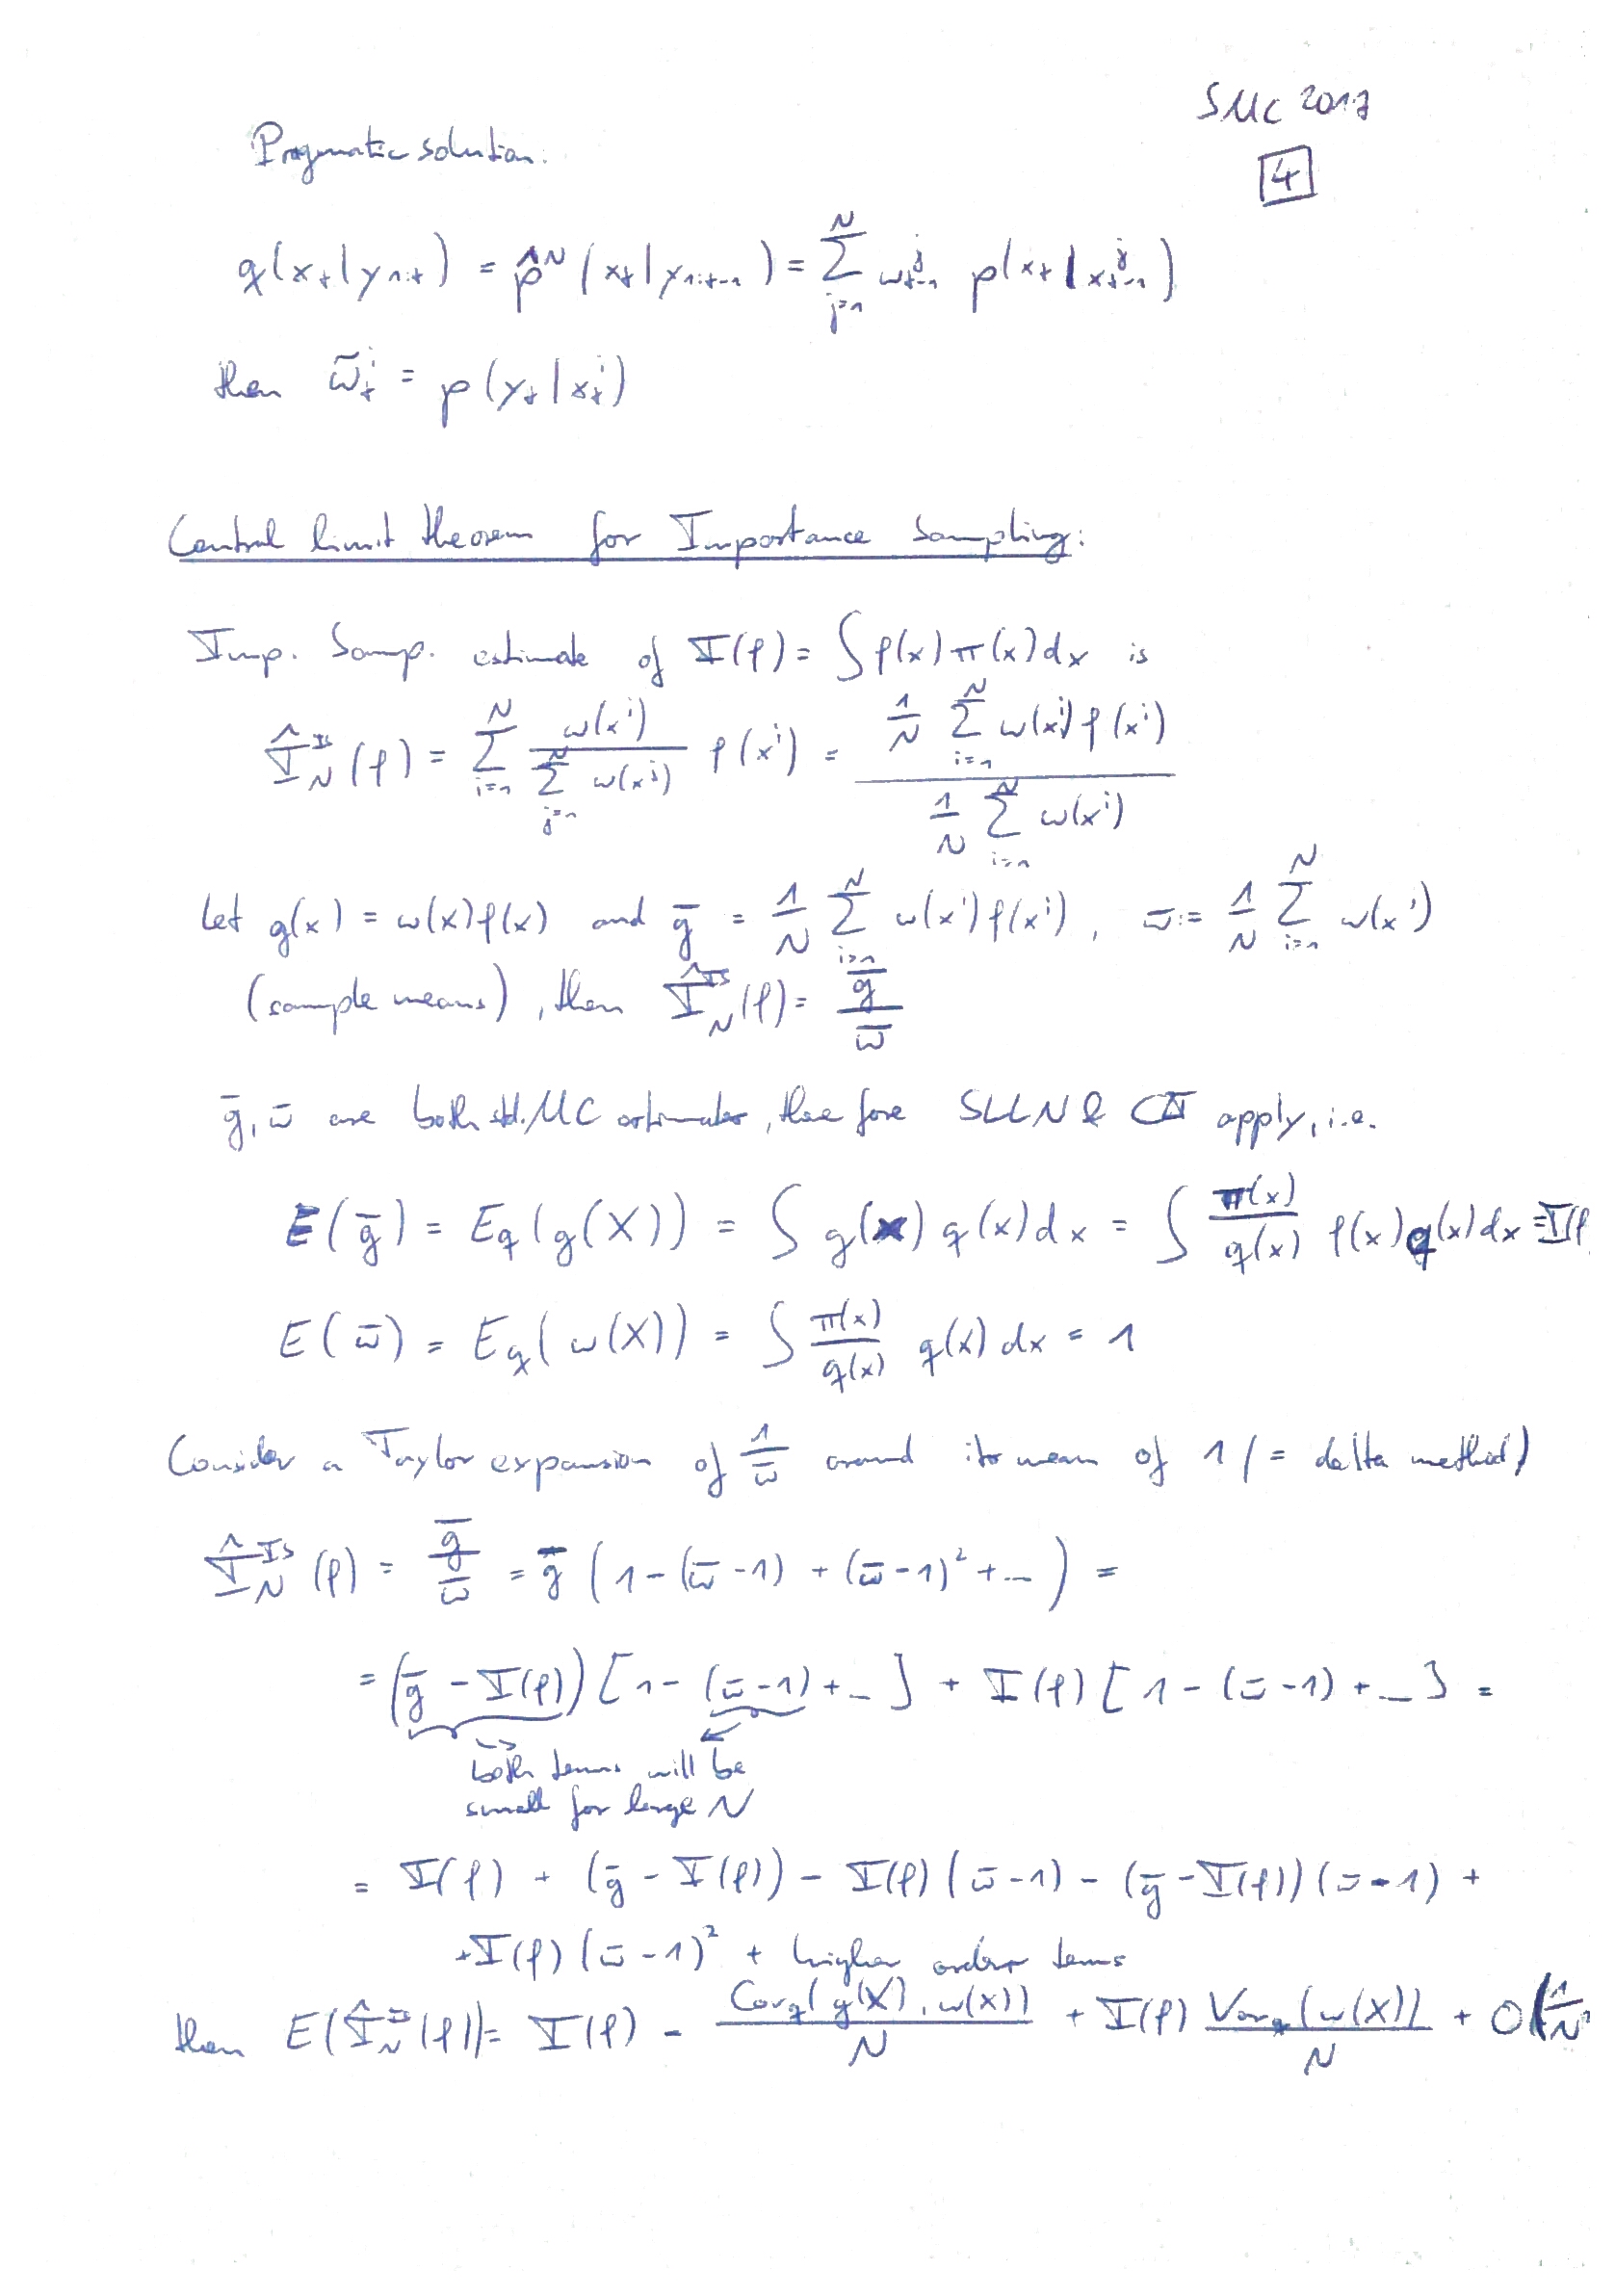 SMC 2017
4
Pragmatic solution:
q(x_t | y_{1:t}) = p̂^N(x_t | y_{1:t-1}) = Σ_{j=1}^N w_{t-1}^j p(x_t | x_{t-1}^j)
then w̃_t^i = p(y_t | x_t^i)
Central limit theorem for Importance Sampling:
Imp. Samp. estimate of I(f) = ∫ f(x) π(x) dx is
Î_N^{IS}(f) = Σ_{i=1}^N w(x^i) / Σ_{j=1}^N w(x^j) f(x^i) = (1/N Σ_{i=1}^N w(x^i) f(x^i)) / (1/N Σ_{i=1}^N w(x^i))
Let g(x) = w(x) f(x) and ḡ = 1/N Σ_{i=1}^N w(x^i) f(x^i), w̄ := 1/N Σ_{i=1}^N w(x^i)
(sample means), then Î_N^{IS}(f) = ḡ / w̄
ḡ, w̄ are both std. MC estimates, therefore SLLN & CLT apply, i.e.
E(ḡ) = E_q(g(X)) = ∫ g(x) q(x) dx = ∫ π(x)/q(x) f(x) q(x) dx = I(f
E(w̄) = E_q(w(X)) = ∫ π(x)/q(x) q(x) dx = 1
Consider a Taylor expansion of 1/w̄ around its mean of 1 (= delta method)
Î_N^{IS}(f) = ḡ/w̄ = ḡ (1 - (w̄-1) + (w̄-1)² + ...) =
= (ḡ - I(f)) [1 - (w̄-1) + ...] + I(f) [1 - (w̄-1) + ...] =
both terms will be
small for large N
= I(f) + (ḡ - I(f)) - I(f) (w̄-1) - (ḡ - I(f)) (w̄-1) +
+ I(f) (w̄-1)² + higher order terms
then E(Î_N^{IS}(f)) = I(f) - Cov_q(g(X), w(X))/N + I(f) Var_q(w(X))/N + O(1/N